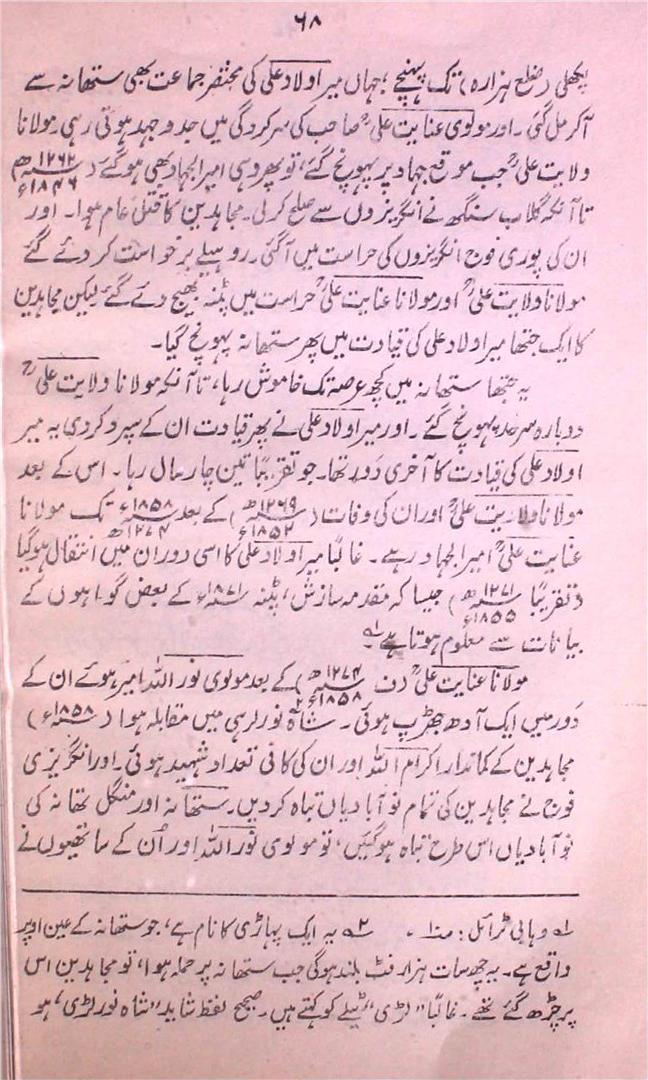 ۶۸
پکھلی (ضلع ہزارہ) تک پہنچے؛ جہاں میر اولاد علی کی مختصر جماعت بھی ستھانہ سے
آکر مل گئی۔ اور مولوی عنایت علیؒ صاحب کی سرکردگی میں جدوجہد ہوتی رہی۔ مولانا
ولایت علیؒ جب موقع جہاد پر پہونچ گئے، تو پھر وہی امیر الجہاد بھی ہو گئے (۱۲۶۲ھ ۱۸۴۶ء)
تا آنکہ گلاب سنگھ نے انگریزوں سے صلح کر لی۔ مجاہدین کا قتل عام ہوا۔ اور
ان کی پوری فوج انگریزوں کی حراست میں آگئی۔ روہیلے برخواست کر دئے گئے
مولانا ولایت علیؒ اور مولانا عنایت علیؒ حراست میں پٹنہ بھیج دئے گئے لیکن مجاہدین
کا ایک جتھا میر اولاد علی کی قیادت میں پھر ستھانہ پہونچ گیا۔
یہ جتھا ستھانہ میں کچھ عرصہ تک خاموش رہا، تا آنکہ مولانا ولایت علیؒ
دوبارہ سرحد پہونچ گئے۔ اور میر اولاد علی نے پھر قیادت ان کے سپرد کر دی یہ میر
اولاد علی کی قیادت کا آخری دور تھا۔ جو تقریبًا تین چار سال رہا۔ اس کے بعد
مولانا ولایت علیؒ اور ان کی وفات (۱۲۶۹ھ ۱۸۵۲ء) کے بعد ۱۸۵۸ء ۱۲۷۴ھ تک مولانا
عنایت علیؒ امیر الجہاد رہے۔ غالبًا میر اولاد علی کا اسی دوران میں انتقال ہو گیا
(تقریبًا ۱۲۷۱ھ ۱۸۵۵ء) جیسا کہ مقدمہ سازش، پٹنہ ۱۸۷۱ء کے بعض گواہوں کے
بیانات سے معلوم ہوتا ہے ۱؎۔
مولانا عنایت علیؒ (ف ۱۲۷۴ھ ۱۸۵۸ء) کے بعد مولوی نور اللہ امیر ہوئے ان کے
دور میں ایک آدھ جھڑپ ہوئی۔ شاہ نور لرہی ۲؎ میں مقابلہ ہوا (۱۸۵۸ء)
مجاہدین کے کماندار اکرام اللہ اور ان کی کافی تعداد شہید ہوئی۔ اور انگریزی
فوج نے مجاہدین کی تمام نوآبادیاں تباہ کر دیں۔ ستھانہ اور منگل تھانہ کی
نوآبادیاں اس طرح تباہ ہوگئیں، تو مولوی نور اللہ اور اُن کے ساتھیوں نے
۱؎ وہابی ٹرائل: ص۱۰۔ ۲؎ یہ ایک پہاڑی کا نام ہے، جو ستھانہ کے عین اوپر
واقع ہے۔ یہ چھ سات ہزار فٹ بلند ہوگی جب ستھانہ پر حملہ ہوا، تو مجاہدین اس
پر چڑھ گئے تھے۔ غالبًا "لڑی" ٹیلے کو کہتے ہیں۔ صحیح لفظ شاید "شاہ نور لڑی" ہو